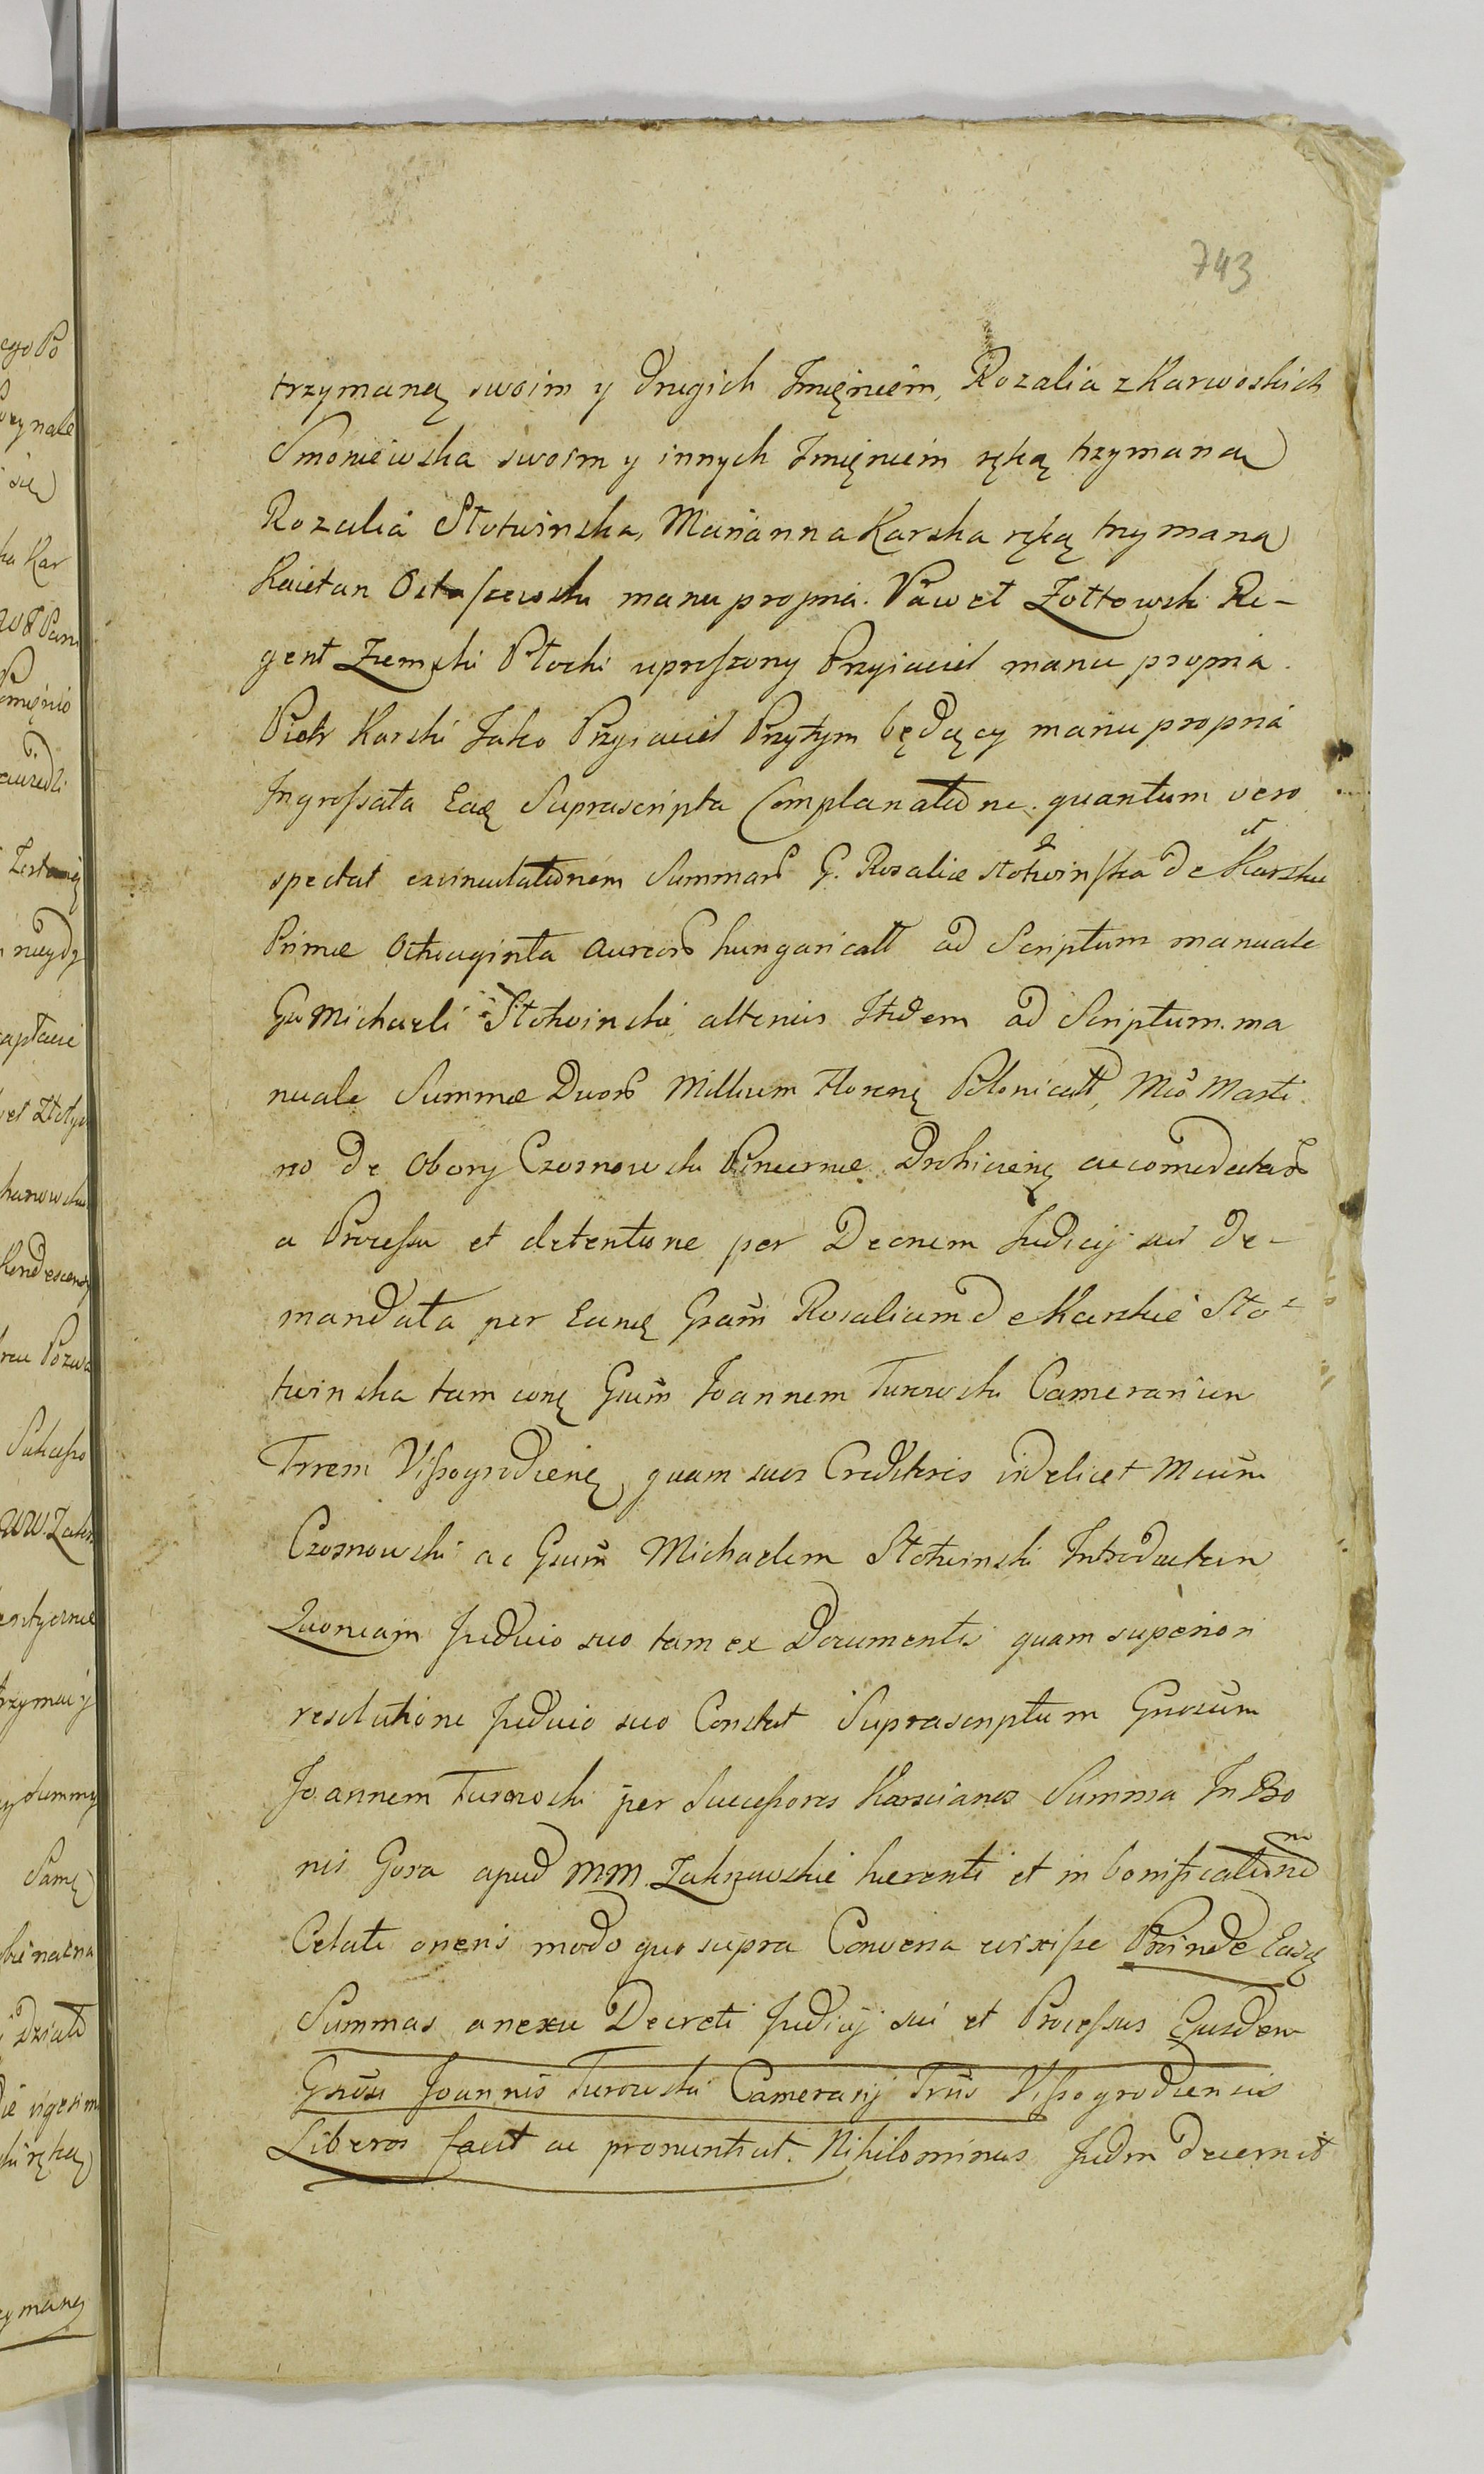 743
trzymaną swoim y drugich Imięniem, Rozalia z Karwoskich
Smoniewska swoim y innych Imięniem ręką trzymaną
Rozalia Stotwinska, Marianna Karska ręką trzymaną
Kaietan Ostaszewski manu propria. Paweł Żołtowski Re-
gent Ziemski Płocki uproszony Przyiaciel manu propria.
Piotr Karski Jako Przyiaciel Przytym będący manu propria
Ingrossata Eaq Suprascripta Complanatione. quantum vero
spectat exvinculationem Summarū G. Rosaliæ Stotwinska de Karskie
Primæ Octuaginta Aureorū hungaricall ad Scriptum manuale
Gu Michaeli Stotwinski alterius Itidem ad Scriptum ma
nuale Summæ Duorū Millium Floreną Polonicall, Mio Marti
no de Obory Czosnowski Pincernæ Drohicieną accomodatarū
a Processu et detentione per Decnem Judicij sui de-
mandata per Eanę Gsam Rosaliam de Karskie Sto-
twinska tam coną Gsum Joannem Turowski Camerarium
Trrem Vissogrodieną quam suos Creditores videlicet Mcum
Czosnowski ac Gsum Michaelem Stotwinski Introductum
Quoniam Judicio suo tam ex Documentis quam superiori
resolutione Judicio suo Constat Suprascriptum Gnosum
Joannem Turowski per Successores Karscianos Summa In Bo
nis Gora apud MM. Zakrzewskie herenti et in bonificationem
Celati oneris modo quo supra Conventa evixisse Proinde Easdę
Summas a nexu Decreti Judicij sui et Processus Ejusdem
Gnosi Joannis Turowski Camerarij Trris Vissogrodiensis
Liberas facit ac pronuntiat. Nihilominus Judm decernit